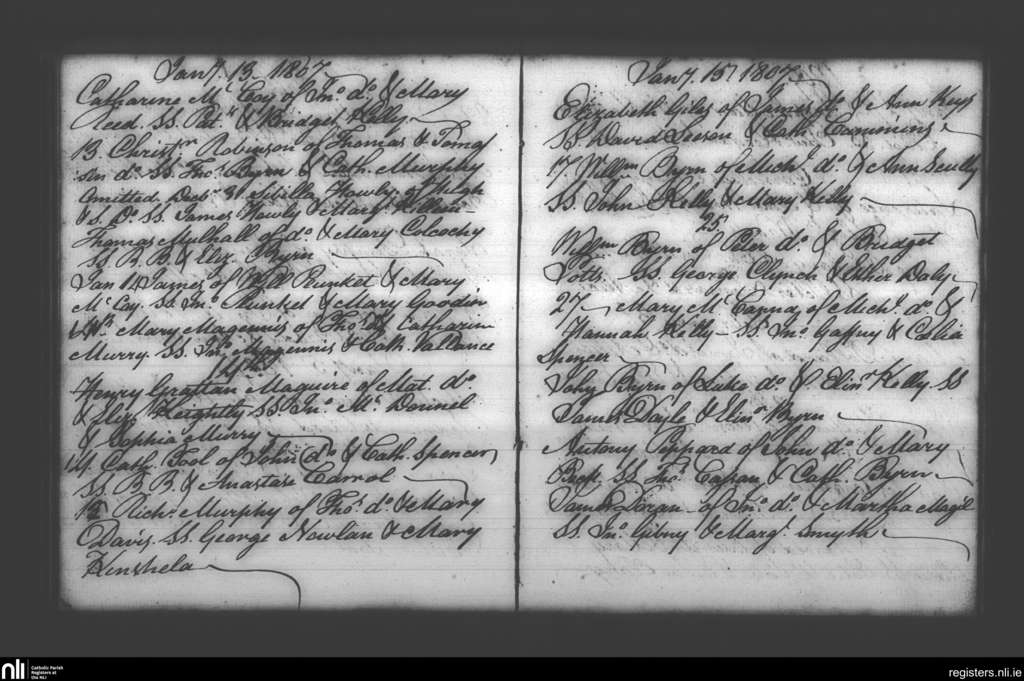 Jany. 13 1807
Catharine Mc Coy of Jno. do. & Mary
Reed. SS. Patk. & Bridget Kelly
13 Christr. Robinson of Thomas &
do. SS. Thos. Byrn & Cath. Murphy
Omitted Decr. 31 Howly of Hugh
& S. Do. SS. James Howly & Mary Killen
Thomas Mulhall of do. & Mary Colcochy
SS B. B & Eliz. Byrn
Jan 14 James of Will Plunket & Mary
Mc Coy. SS. Jno. Plunket & Mary Goodin
Mary Magennis of Thos. & Catharin
Murry. SS. Jno. Magennis & Cath. Vallance
14th
Henry Grattan Maguire of Mat. do.
& Eliz. Keightly SS. Jno. Mc. Donnel
& Sophia Murry
14 Cath. Tool of John do. & Cath. Spencer
SS. B. B. & Anastase Carrol
12 Richd. Murphy of Thos. do. & Mary
Davis. SS. George Nowlan & Mary
Kinshela
Jany. 15 1807
Elizabeth Giles of James do. & Ann Keys
SS. David Leeson & Cath. Cummins
17 Willm. Byrn of Michl. do. & Ann Scully
SS John Kelly & Mary Kelly
25
Willm. Byrn of Peter do. & Bridget
Potts. SS. George Clynch & Esther Daly
27 Mary Mc. of Michl. do. &
Hannah Kelly SS. Jno. Gaffny & Celia
Spencer
John Byrn of Luke do. & Elinr. Kelly SS
James Doyle & Elinr. Byrn
Antony Peppard of John do. & Mary
SS. Thos. & Cath. Byrn
James Doran of Jno. do. & Martha Magil
SS. Jno. Gibny & Margt. Smyth
nli
Catholic Parish
Registers at
the NLI
registers.nli.ie